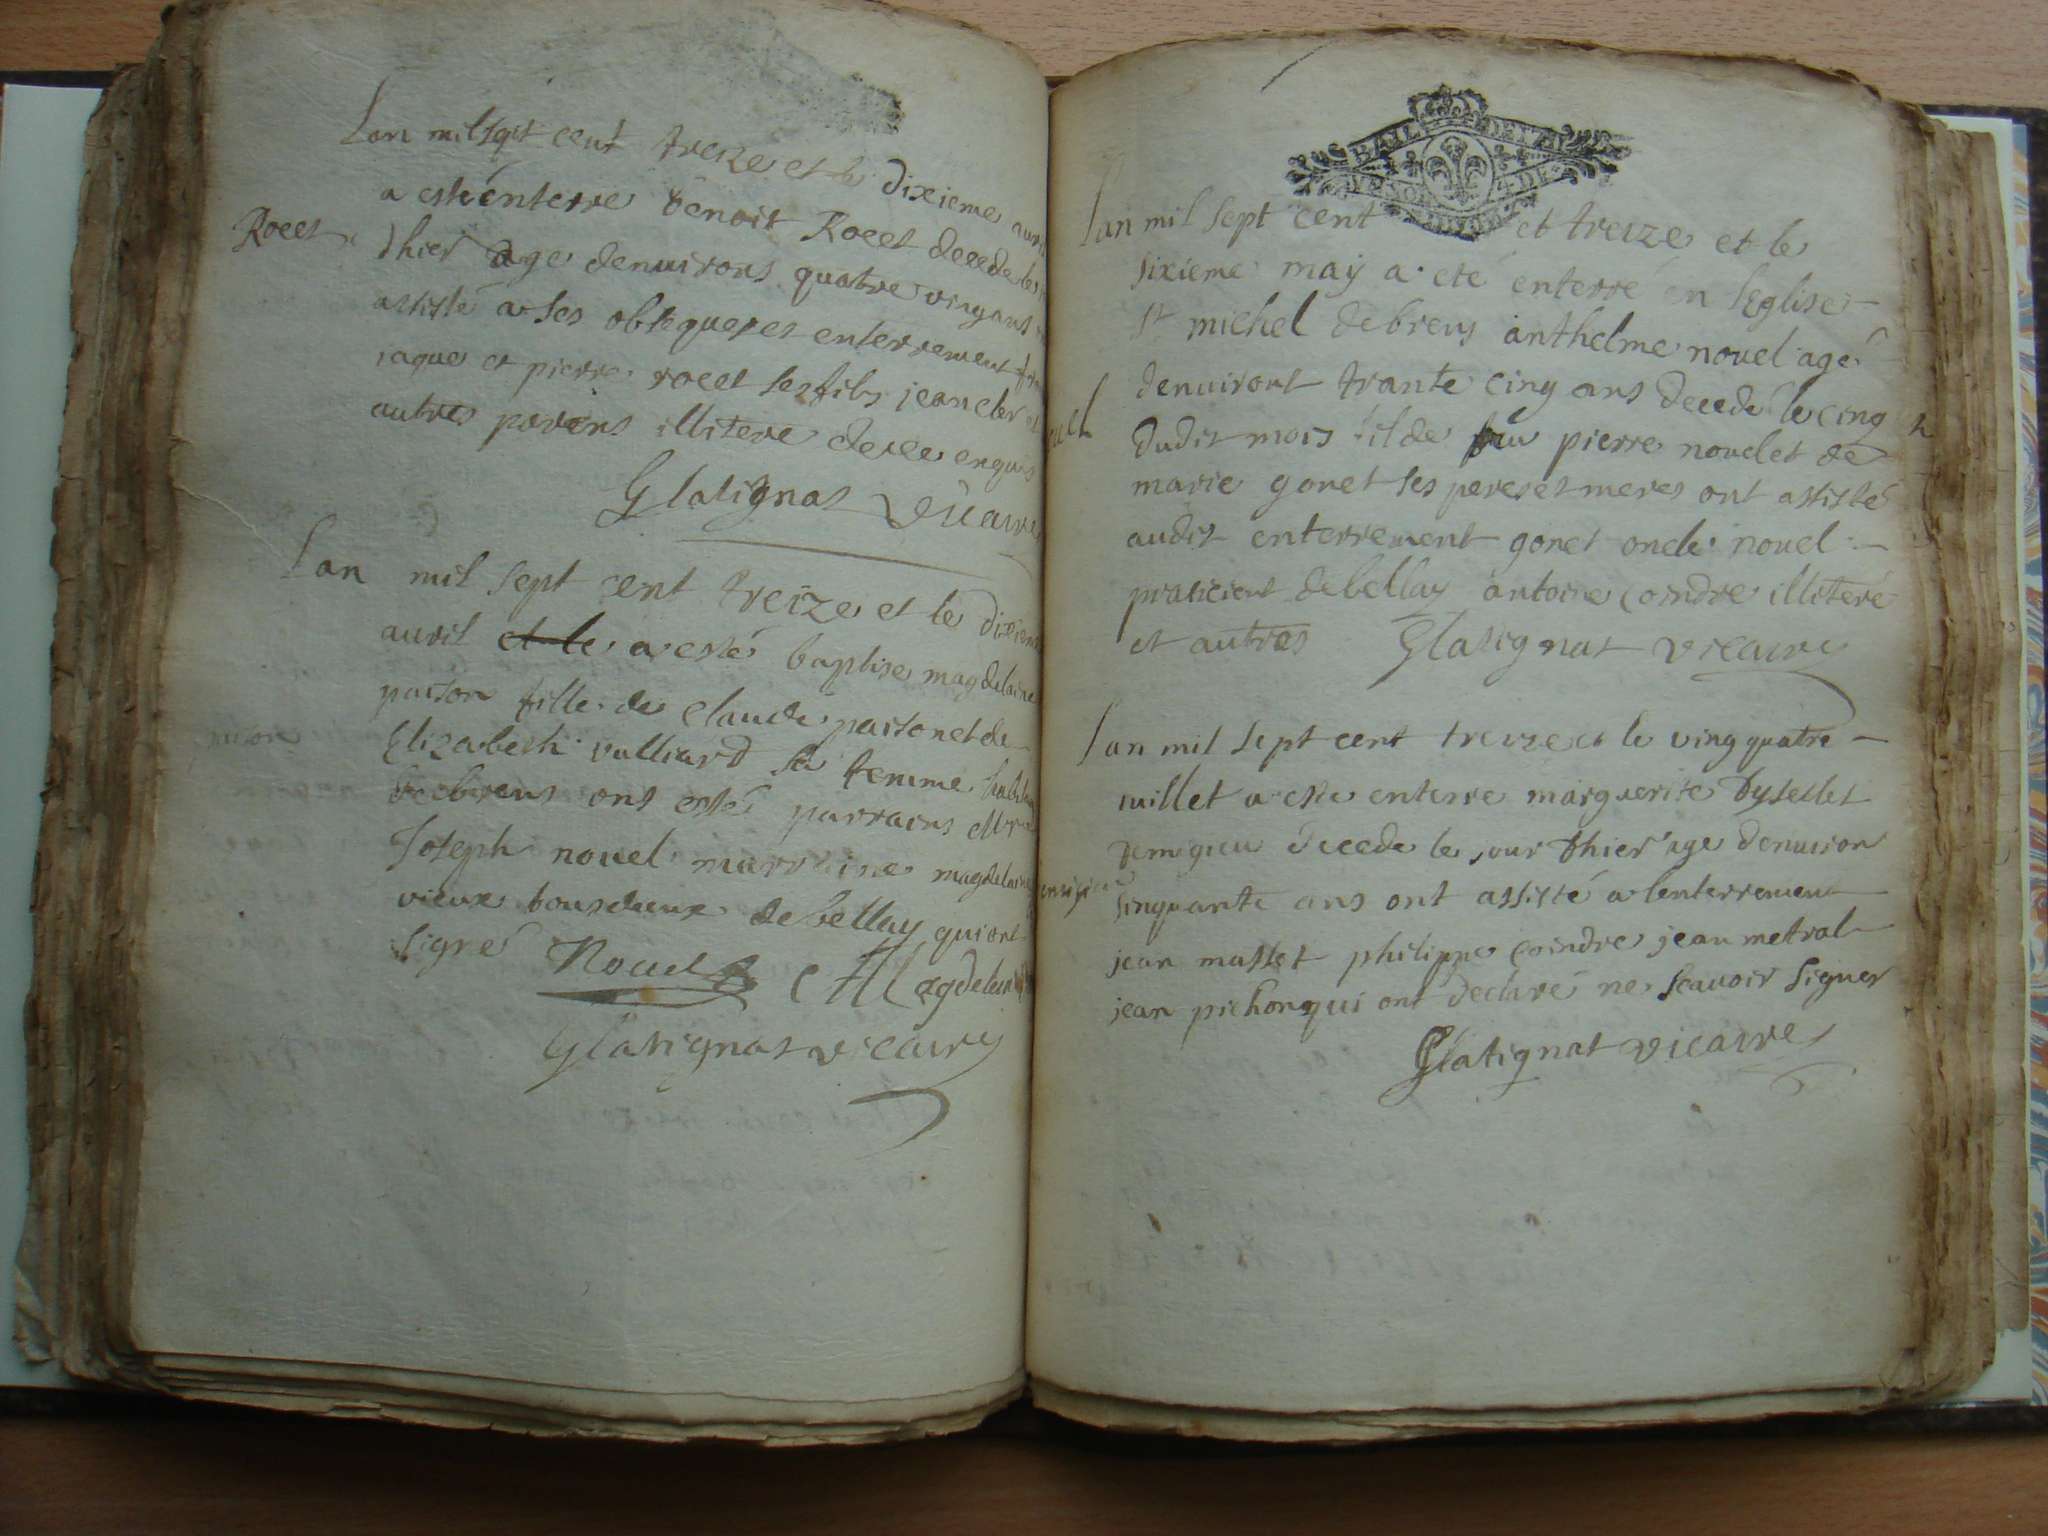 Lan mil sept cent treize et le dixieme auril
a esté enterre benoit Rocet decede le
Rocet
d hier age denuirons quatre vingans
assisté a ses obseques et enterrement
iaque et pierre rocet ses fils jean cler et
autres parens illitere de ce enquis
Glatignat vicaire
Lan mil sept cent treize et le dixieme
auril et le a esté baptise magdelaine
paison fille de Claude paison et de
Elizabeth vulliard sa femme
de brens ont esté parrains
Joseph nouel marraine magdelaine
vieux tous deux de bellay qui ont
signé Nouel Magdelaine
Glatignat vicaire
BAIL DE
Lan mil sept cent et treize et le
sixieme may a eté enterré en l'Eglise
st michel de brens anthelme nouel agé
denuiront trante cinq ans decedé le cinq
dudit mois fil de feu pierre nouel et de
marie gonet ses peres et meres ont assisté
audit enterrement gonet oncle nouel
praticient de bellay antoine coindre illiteré
et autres Glatignat vicaire
Lan mil sept cent treize et le ving quatre
iuillet a este enterre marguerite
decede le jour d hier age denuiron
sinquante ans ont assisté a lenterrement
jean masset philippe coindre jean metral
jean pichon qui ont declaré ne scauoir signer
Glatignat vicaire